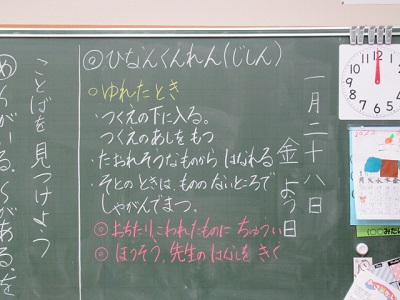 一月二十八日
金よう日
◎ひなんくんれん(じしん)
○ゆれたとき
・つくえの下に入る。
つくえのあしをもつ
・たおれそうなものから はなれる
・そとのときは、もののないところで
しゃがんでまつ。
◎おちたり、われたものに ちゅうい
◎ほうそう、先生のはなしを きく
ことばを見つけよう
12
2022